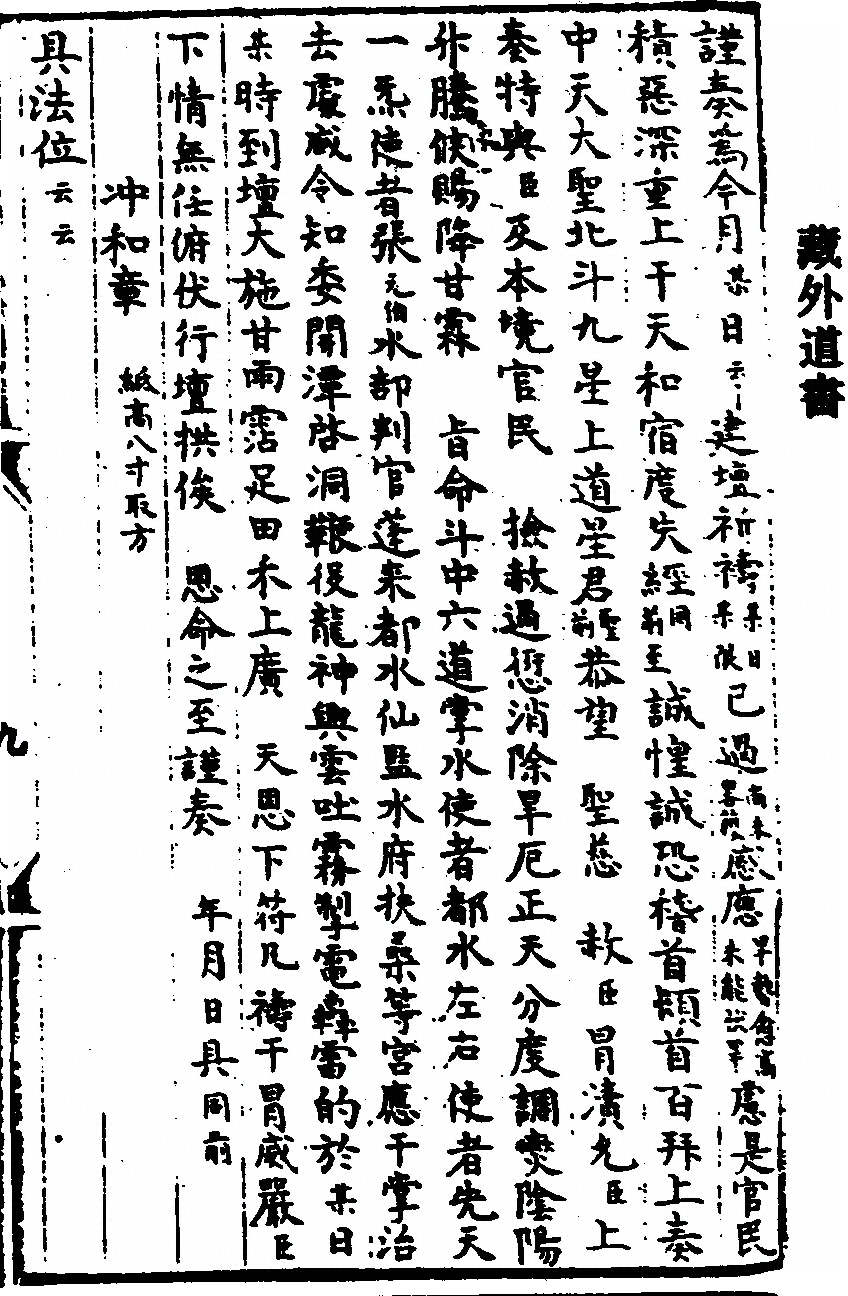 藏外道書
謹奏為今月某日云云建壇祈禱某日某限已過尚未畧荷感應旱勢愈高未能沃罙慮是官民
積惡深重上干天和宿度失經同前至誠惶誠恐稽首頓首百拜上奏
中天大聖北斗九星上道星君聖前恭望　聖慈　赦臣冒瀆允臣上
奏特與臣及本境官民　撿赦過愆消除旱厄正天分度調爕陰陽
外騰倐賜降甘霖　旨命斗中六道掌水使者都水左右使者先天
一炁使者張元伯水部判官蓬萊都水仙監水府扶桑等宮應干掌治
去處咸令知委開潭啓洞鞭役龍神興雲吐霧掣電轟雷的於某日
某時到壇大施甘雨霑足田禾上廣　天恩下符凡禱干冒威嚴臣
下情無任俯伏行壇拱俟　恩命之至謹奏　年月日具同前
冲和章　紙高八寸取方
具法位云云
九